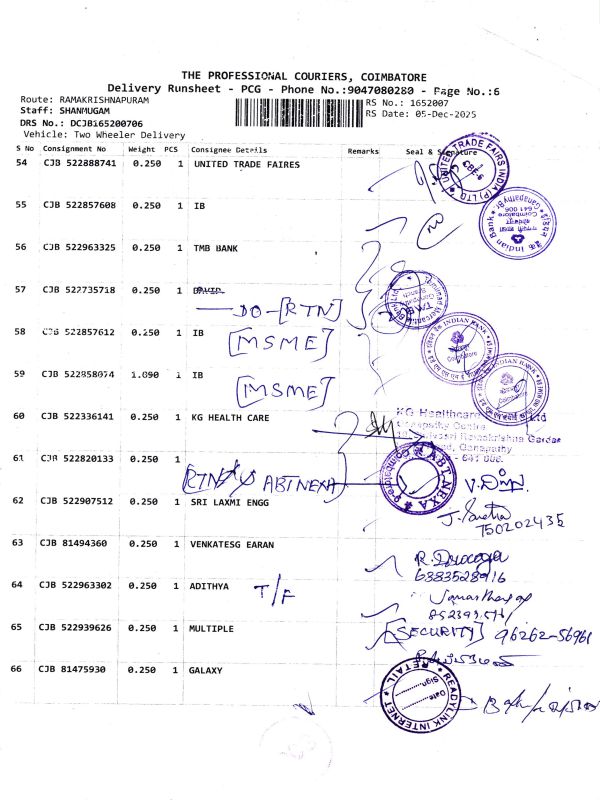 THE PROFESSIONAL COURIERS, COIMBATORE
Delivery Runsheet - PCG - Phone No.:9047080280 - Page No.:6
Route: RAMAKRISHNAPURAM
Staff: SHANMUGAM
DRS No.: DCJB165200706
Vehicle: Two Wheeler Delivery
RS No.: 1652007
RS Date: 05-Dec-2025
S No Consignment No Weight PCS Consignee Details Remarks Seal & Signature
54 CJB 522888741 0.250 1 UNITED TRADE FAIRES
UNITED TRADE FAIRS INDIA (P) LTD
CBE-6
55 CJB 522857608 0.250 1 IB
Indian Bank
Coimbatore
641 006
56 CJB 522963325 0.250 1 TMB BANK
57 CJB 522735718 0.250 1
DO-[RTN]
58 CJB 522857612 0.250 1 IB
[MSME]
INDIAN BANK
59 CJB 522858074 1.090 1 IB
[MSME]
INDIAN BANK
60 CJB 522336141 0.250 1 KG HEALTH CARE
KG Healthcare Ltd
Ganapathy Centre
Ramakrishna Garden
Ganapathy
61 CJB 522820133 0.250 1
ABT NEXA
ABT NEXA
62 CJB 522907512 0.250 1 SRI LAXMI ENGG
63 CJB 81494360 0.250 1 VENKATESG EARAN
64 CJB 522963302 0.250 1 ADITHYA T/F
65 CJB 522939626 0.250 1 MULTIPLE [SECURITY] 96262-56961
66 CJB 81475930 0.250 1 GALAXY
READYLINK INTERNET
Date
Sign